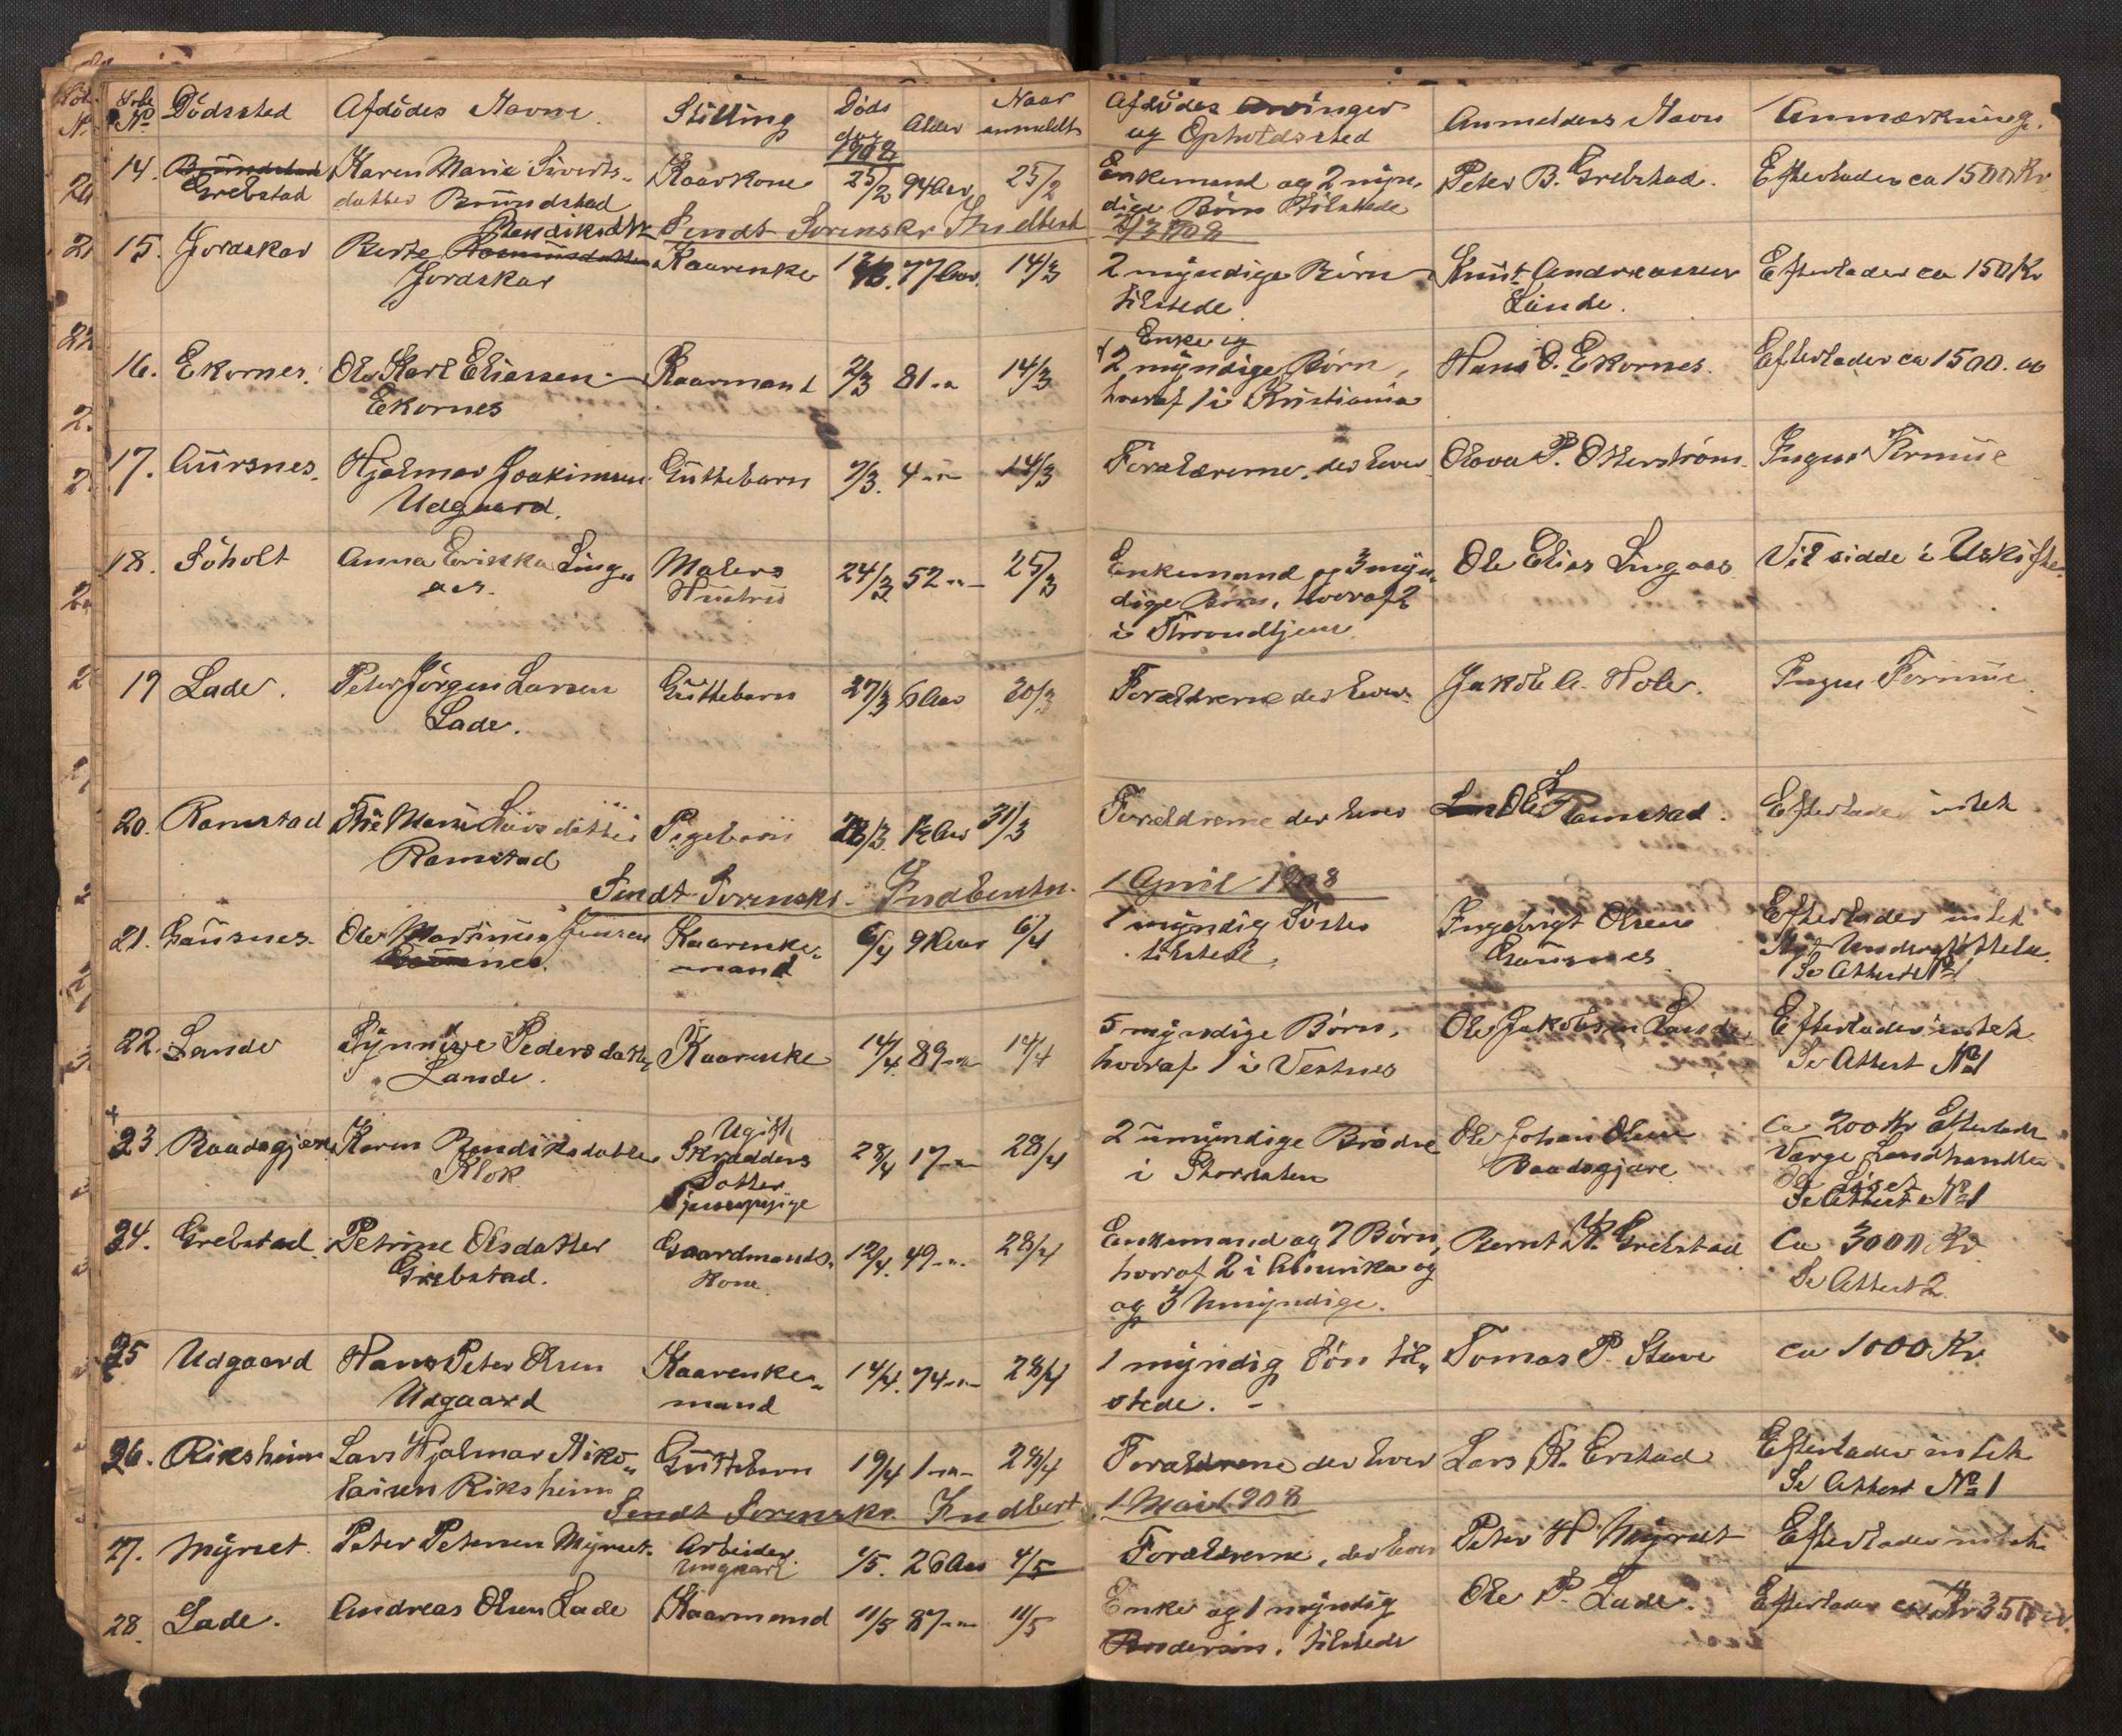 Løbe Dødssted Afdødes Navn Stilling Døds Alder Naar Afdødes Arvinger Anmelders Navn Anmærkning.
No dag anmeldt og Opholdssted
1908
14. Brundstad Karen Marie Siverts- Kaarkone 25/2 94 Aar 25/2 Enkemand og 2 myn- Peter B. Grebstad. Efterlader ca 1500 Kr
Grebstad datter Brundstad dige Børn tilstede
Bendiksdtr Sendt Sorenskr Indbert 2/3 1908
15. Jordskar Berte Rasmusdatter Kaarenke 77 Aar. 14/3 2 myndige Børn Knut Andreassen Efterlader ca 150 Kr
Jordskar tilstede Lande.
Enke og
16. Ekornes. Ole Karl Eliassen Kaarmand 2/3 81 „ 14/3 2 myndige Børn, Hans O. Ekornes. Efterlader ca 1500.00
Ekornes hvoraf 1 i Kristiania
17. Aursnes. Hjalmar Joakimsen Guttebarn 7/3. 4 „ 14/3 Forældrerne, der lever Olova P. Otterstrøm. Ingen Formue
Udgaard.
18. Søholt Anna Erikka Ling„ Malers 24/3 52 „ 25/3 Enkemand og 3 myn„ Ole Elias Lingaas Vil sidde i Uskifte.
aas. Hustru dige Børn, hvoraf 2
i Throndhjem
19 Lade. Peter Jørgen Larsen Guttebarn 27/3 6 Aar 30/3 Forældrerne der lever. Jakob A. Hole. Ingen Formue
Lade.
20. Ramstad Marie Larsdatter Pigebarn 28/3 Aar 31/3 Forældrerne der lever Ole Ramstad. Efterlader intet
Ramstad
Sendt Sorenskr. Indberetn. 1 April 1908
21. Gausnes. Ole Martinus Jensen Kaarenke„ 6/4 Aar 6/4 1 myndig Søster Ingebrigt Olsen Efterlader intet
Gausnes. mand tilstede. Gausnes Nyt Understøttelse.
Se Attest No 1
22. Lande Synnøve Pedersdatter Kaarenke 14/4. 89 „ 14/4 5 myndige Børn, Ole Jakobsen Lande Efterlader intet
Lande. hvoraf 1 i Vestnes Se Attest No 1
+
23 Baadsgjære Karen Bendiksdatter Ugift 28/4 17 „ 28/4 2 umyndige Brødre Ole Johan Olsen Ca 200 Kr Efterladt
Klok Skrædders i Stordalen Baadsgjære Værge Landhandler
Datter
Tjenestepige Se Attest No 1
24. Grebstad Petrine Olsdatter Gaardmands„ 12/4. 49 „ 28/4 Enkemand og 7 Børn, Bernt K. Grebstad Ca 3000 Kr
Grebstad. Kone. hvoraf 2 i Amerika og Se Attest 2
og 3 Umyndige.
25 Udgaard Hans Peter Olsen Kaarenke„ 14/4. 74 „ 28/4 1 myndig Søn til„ Tomas P. Stave ca 1000 Kr
Udgaard mand stede. –
26. Riksheim Lars Hjalmar Niko„ Guttebarn 19/4 1 „ 28/4 Forældrerne der lever Lars K. Erstad Efterlader intet
laisen Riksheim Se Attest No 1
Sendt Sorenskr. Indbert 1 Mai 1908
27. Myrset. Peter Petersen Myrset. Arbeider 1/5. 26 Aar 4/5 Forældrerne, der lever Peter H Myrset Efterlader intet
Ungkarl
28. Lade. Andreas Olsen Lade Kaarmand 11/5 87 „ 11/5 Enke og 1 myndig Ole P. Lade. Efterlader ca Kr 350
Brodersøn. tilstede